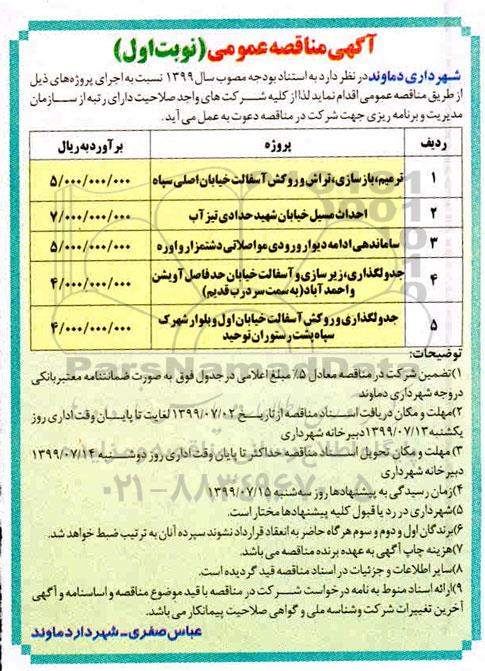 آگهی مناقصه عمومی (نوبت اول)
شهرداری دماوند در نظر دارد به استناد بودجه مصوب سال ۱۳۹۹ نسبت به اجرای پروژه‌های ذیل
از طریق مناقصه عمومی اقدام نماید لذا از کلیه شرکت های واجد صلاحیت دارای رتبه از سازمان
مدیریت و برنامه ریزی جهت شرکت در مناقصه دعوت به عمل می آید.
ردیف پروژه برآورد به ریال
۱ ترمیم، بازسازی، تراش و روکش آسفالت خیابان اصلی سپاه ۵/۰۰۰/۰۰۰/۰۰۰
۲ احداث مسیل خیابان شهید حدادی تیزآب ۷/۰۰۰/۰۰۰/۰۰۰
۳ ساماندهی ادامه دیوار ورودی مواصلاتی دشتمزار واوره ۵/۰۰۰/۰۰۰/۰۰۰
۴ جدولگذاری، زیرسازی و آسفالت خیابان حد فاصل آویشن
و احمدآباد (به سمت سر درب قدیم) ۴/۰۰۰/۰۰۰/۰۰۰
۵ جدولگذاری و روکش آسفالت خیابان اول و بلوار شهرک
سپاه پشت رستوران توحید ۴/۰۰۰/۰۰۰/۰۰۰
توضیحات:
۱)تضمین شرکت در مناقصه معادل ۵٪ مبلغ اعلامی در جدول فوق به صورت ضمانتنامه معتبر بانکی
در وجه شهرداری دماوند
۲)مهلت و مکان دریافت اسناد مناقصه از تاریخ ۱۳۹۹/۰۷/۰۲ لغایت تا پایان وقت اداری روز
یکشنبه ۱۳۹۹/۰۷/۱۳ دبیرخانه شهرداری
۳)مهلت و مکان تحویل اسناد مناقصه حداکثر تا پایان وقت اداری روز دوشنبه ۱۳۹۹/۰۷/۱۴
دبیرخانه شهرداری
۴)زمان رسیدگی به پیشنهادها روز سه شنبه ۱۳۹۹/۰۷/۱۵
۵)شهرداری در رد یا قبول کلیه پیشنهادها مختار است.
۶)برندگان اول و دوم و سوم هرگاه حاضر به انعقاد قرارداد نشوند سپرده آنان به ترتیب ضبط خواهد شد.
۷)هزینه چاپ آگهی به عهده برنده مناقصه می باشد.
۸)سایر اطلاعات و جزئیات در اسناد مناقصه قید گردیده است.
۹)ارائه اسناد منوط به نامه درخواست شرکت در مناقصه با قید موضوع مناقصه و اساسنامه و آگهی
آخرین تغییرات شرکت وشناسه ملی و گواهی صلاحیت پیمانکار می باشد.
عباس صفری - شهردار دماوند
ParsNamadData
۰۲۱-۸۸۳۴۹۶۷۰-۵